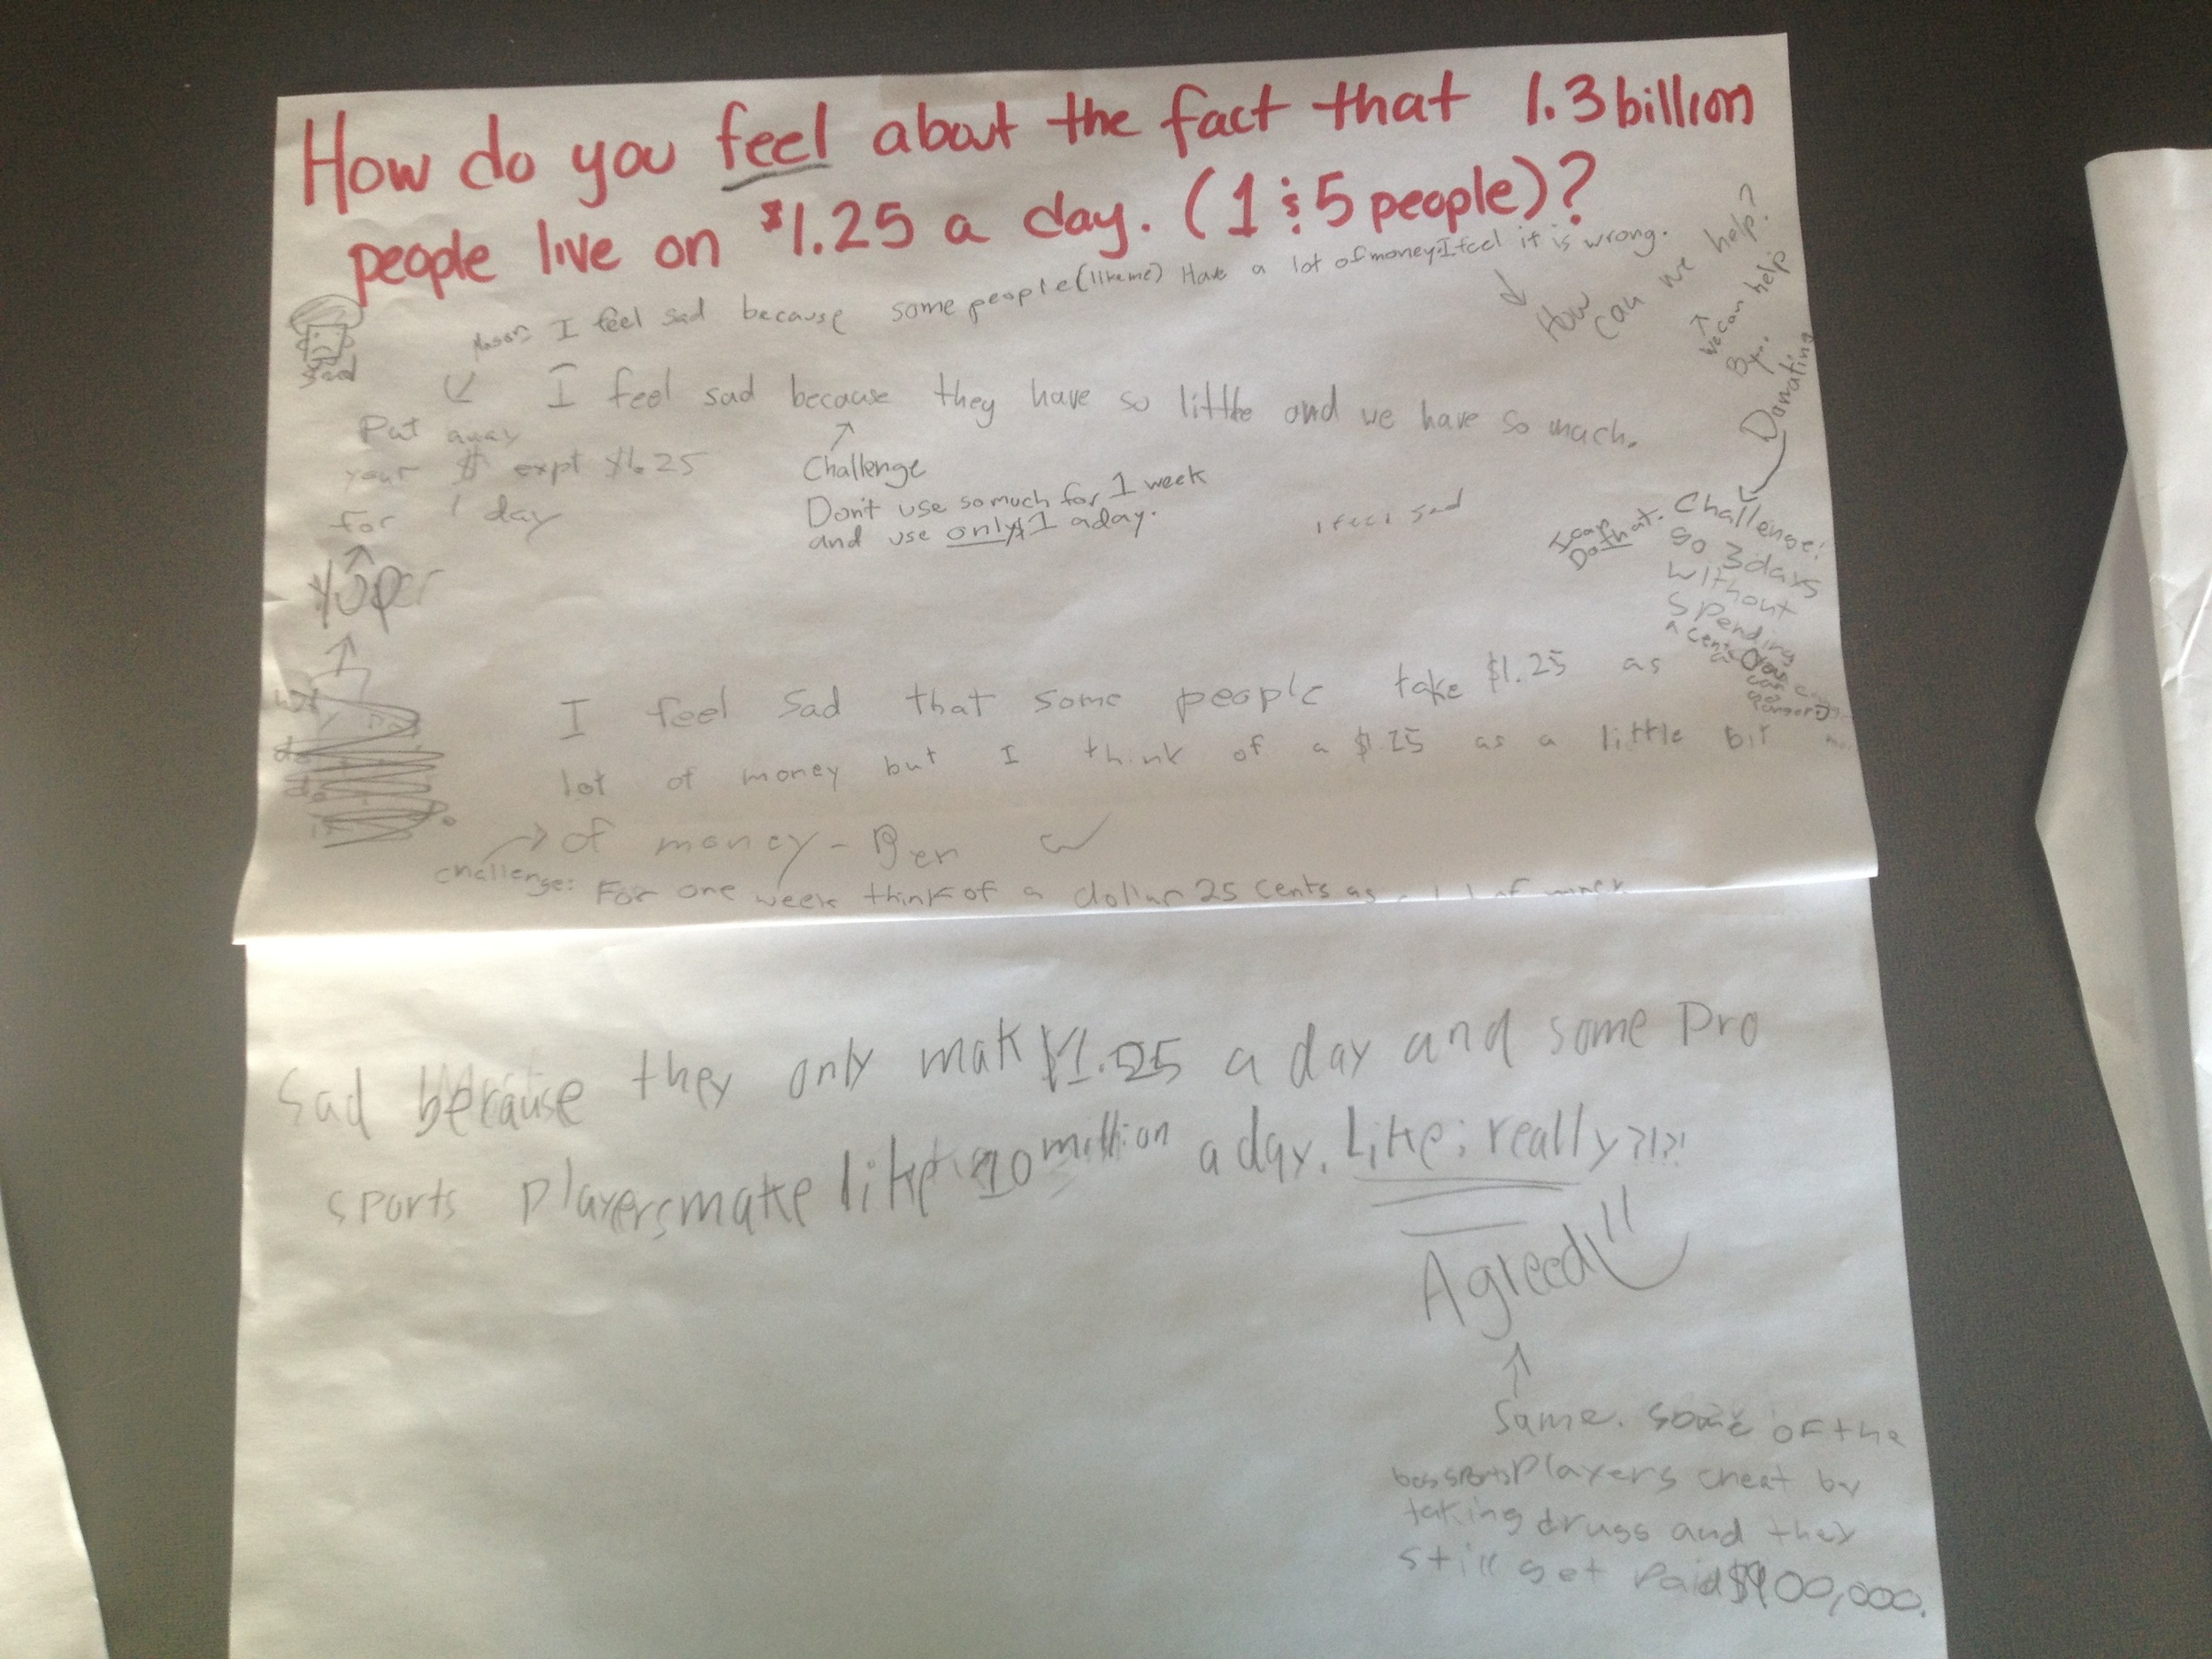 How do you feel about the fact that 1.3 billion
people live on $1.25 a day. (1 : 5 people)?
Mason I feel sad because some people (like me) Have a lot of money. I feel it is wrong.
How can we help?
We can help
By...
Donating
sad
I feel sad because they have so little and we have so much.
Put away
your $ expt $1.25
for 1 day
Yuper
Challenge
Don't use so much for 1 week
and use only $1 a day.
i feel sad
I can
Do that.
Challenge:
go 3 days
without
spending
a cent
I feel sad that some people take $1.25 as a
lot of money but I think of a $1.25 as a little bit
of money - Ben
challenge: For one week think of a dollar 25 cents as a lot of money
Sad because they only mak $1.25 a day and some Pro
sports Players make like 10 million a day. Like; really?!?!
Agreed!
Same. Some of the
Players cheat by
taking drugs and they
still get Paid $900,000.